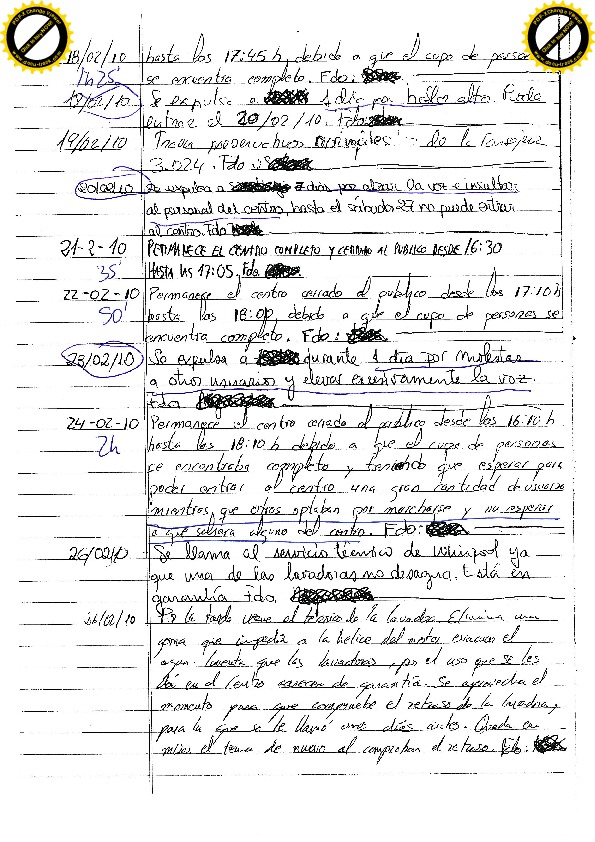 18/02/10 hasta las 17:45 h, debido a que el cupo de personas
1h 25' se encuentra completo. Fdo:
18/02/10 Se expulsa a 1 día por hablar alto. Puede
entrar el 20/02/10. Fdo:
19/02/10 Traen preservativos de la Consejería
Fdo:
20/02/10 Se expulsa a 7 días por alzar la voz e insultar
al personal del centro, hasta el sábado 27 no puede entrar
al centro. Fdo
21-2-10 PERMANECE EL CENTRO COMPLETO Y CERRADO AL PUBLICO DESDE 16:30
35' HASTA LAS 17:05. Fdo
22-02-10 Permanece el centro cerrado al publico desde las 17:10h
50' hasta las 18:00 debido a que el cupo de personas se
encuentra completo. Fdo:
23/02/10 Se expulsa a durante 1 día por molestar
a otros usuarios y elevar excesivamente la voz.
Fdo:
24-02-10 Permanece el centro cerrado al publico desde las 16:10 h
2h hasta las 18:10 h debido a que el cupo de personas
se encontraba completo y teniendo que esperar para
poder entrar al centro una gran cantidad de usuarios
mientras que otros optaban por marcharse y no esperar
a que saliera alguno del centro. Fdo:
26/02/10 Se llama al servicio técnico de Whirlpool ya
que una de las lavadoras no desagua. Está en
garantía Fdo.
26/02/10 Por la tarde viene el técnico de la lavadora. Elimina una
goma que impedía a la hélice del motor evacuar el
agua. Comenta que las lavadoras, por el uso que se les
da en el Centro carecen de garantía. Se aprovecha el
momento para que compruebe el retraso de la lavadora,
para la que se le llamó unos días antes. Queda en
el tema de nuevo al comprobar el retraso. Fdo: